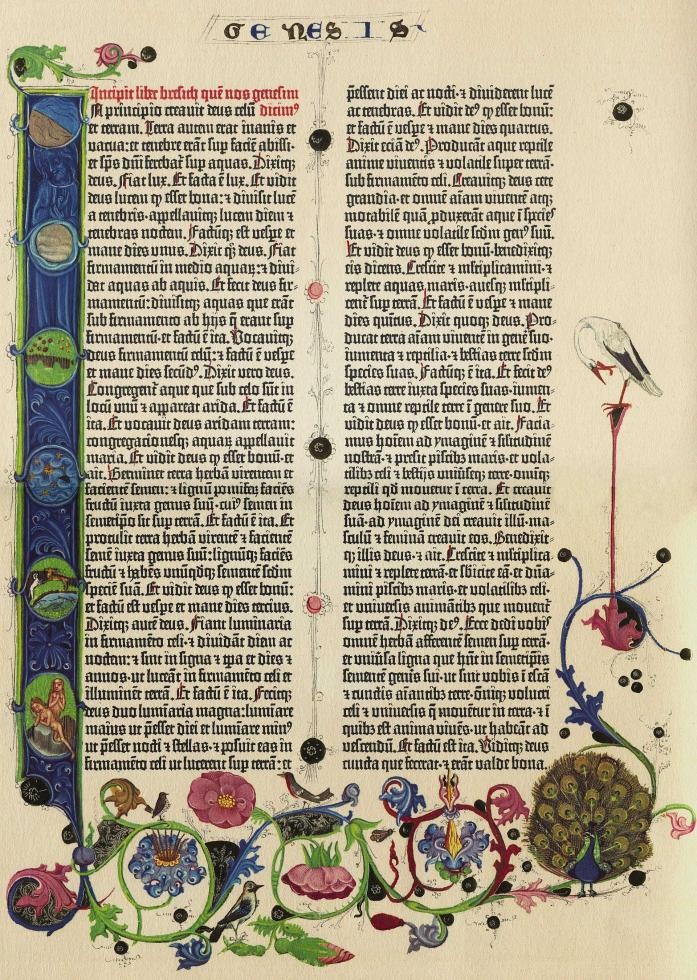 GENESIS
Incipit liber bresich quē nos genesim
In principio creavit deus celū dicim⁹
et terram. Terra autem erat inanis et
vacua: et tenebre erāt sup faciē abissi:
et sp̄s dn̄i ferebat᷑ sup aquas. Dixitq;
deus. Fiat lux. Et facta ē lux. Et vidit
deus lucem q̄ esset bona: & divisit lucē
a tenebris. appellavitq; lucem diem &
tenebras noctem. Factūq; est vespe et
mane dies unus. Dixit q̄; deus. Fiat
firmamentū in medio aquaꝝ: & divi-
dat aquas ab aquis. Et fecit deus fir-
mamentū: divisitq; aquas que erāt
sub firmamento ab hijs q̄ erant sup
firmamentū: et factū ē ita. Vocavitq;
deus firmamentū celū: & factū ē vespe
et mane dies secūd⁹. Dixit vero deus.
Congregent᷑ aque que sub celo sūt in
locū unū & appareat arida. Et factū ē
ita. Et vocavit deus aridam terram:
congregacionesq; aquaꝝ appellavit
maria. Et vidit deus q̄ esset bonū. et
ait. Germinet terra herbā virentem et
facientē semen: & lignū pomiferū faciēs
fructū iuxta genus suū. cui⁹ semen in
semetipō sit sup terrā. Et factū ē ita. Et
protulit terra herbā virentē & facientē
semē iuxta genus suū: lignūq; faciēs
fructū & habēs unūqdq; sementē scdm
speciē suā. Et vidit deus q̄ esset bonū:
et factū est vespe et mane dies tercius.
Dixitq; autē deus. Fiant luminaria
in firmamēto celi. & dividāt diem ac
noctem: & sint in signa & tpa et dies &
annos. ut luceāt in firmamēto celi et
illuminēt terrā. Et factū ē ita. Fecitq;
deus duo luminaria magna: luminare
maius ut pesset diei et luminare min⁹
ut pesset nocti & stellas. & posuit eas in
firmamēto celi ut lucerent sup terrā: et
pessent diei ac nocti. & dividerent lucē
ac tenebras. Et vidit de⁹ q̄ esset bonū:
et factū ē vespe & mane dies quartus.
Dixit eciā de⁹. Producāt aque reptile
anime viventis & volatile super terrā.
sub firmamēto celi. Creavitq; deus cete
grandia. et omnē aīam viventē atq;
motabilē quā pduxerāt aque ī species
suas. & omne volatile scdm gen⁹ suū.
Et vidit deus q̄ esset bonū. benedixitq;
eis dicens. Crescite & mltiplicamini. &
replete aquas maris. avesq; mltipli-
cent᷑ sup terrā. Et factū ē vespe & mane
dies quītus. Dixit quoq; deus. Pro-
ducat terra aīam viventē in genē suo.
iumenta & reptilia. & bestias terre scdm
species suas. Factūq; ē ita. Et fecit de⁹
bestias terre iuxta species suas. iumen-
ta & omne reptile terre ī genere suo. Et
vidit deus q̄ esset bonū. et ait. Facia-
mus hoīem ad ymaginē & silitudinē
nostrā. & presit piscibz maris. et vola-
tilibz celi & bestijs univseq; terre. omīq;
reptili qd movetur ī terra. Et creavit
deus hoīem ad ymaginē & silitudinē
suā. ad ymaginē dei creavit illū. ma-
sculū & feminā creavit eos. Benedixit-
q; illis deus. & ait. Crescite & mltiplica-
mini & replete terrā. et sbicite eā. et dūa-
mini piscibz maris. et volatilibz celi.
et univsis animātibz que movent᷑
sup terrā. Dixitq; de⁹. Ecce dedi vobis
omnē herbā afferentē semen sup terrā.
et univsa ligna que hnt in semetipis
sementē genis sui. ut sint vobis ī escā
& cunctis aīantibz terre. omīq; volucri
celi & univsis q̄ moventur in terra. & ī
quibz est anima vivēs. ut habeāt ad
vescendū. Et factū est ita. Viditq; deus
cuncta que fecerat. & erāt valde bona.